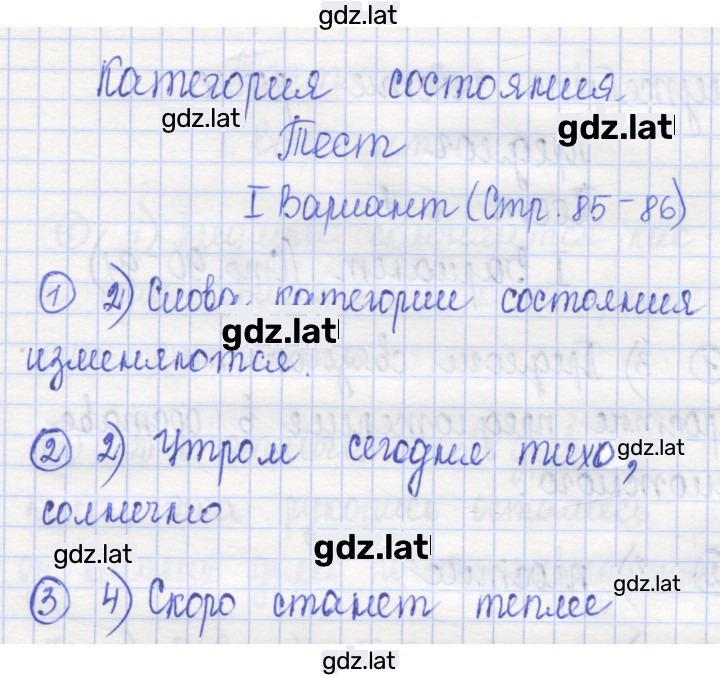 gdz.lat
Категория состояния.
gdz.lat
gdz.lat
Тест
I Вариант (Стр. 85-86)
① 2) Слова категории состояния
gdz.lat
изменяются.
② 2) Утром сегодня тихо,
gdz.lat
солнечно
gdz.lat
gdz.lat
gdz.lat
③ 4) Скоро станет теплее
gdz.lat